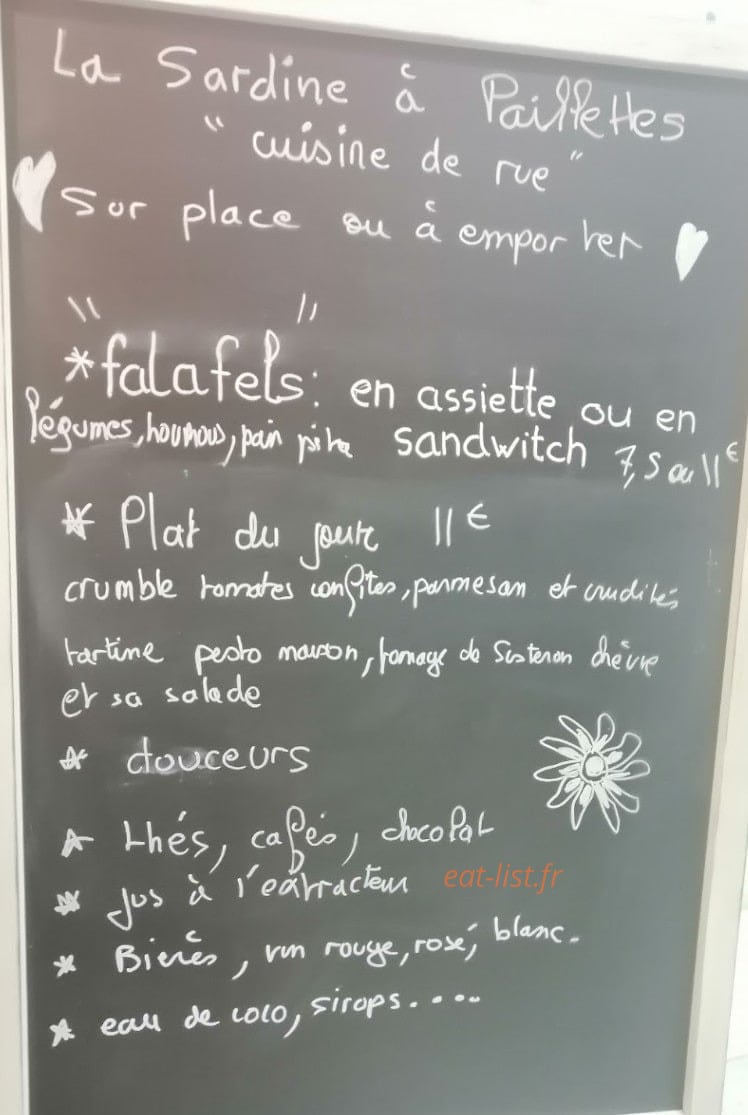 La Sardine à Paillettes
" cuisine de rue "
Sur place ou à emporter
" "
*falafels: en assiette ou en
légumes, houmous, pain pita sandwitch 7,5 ou 11€
* Plat du jour 11€
crumble tomates confites, parmesan et crudités
tartine pesto maison, fromage de Sisteron chèvre
et sa salade
* douceurs
* thés, cafés, chocolat
* jus à l'extracteur
eat-list.fr
* Bières, vin rouge, rosé, blanc.
* eau de coco, sirops.....